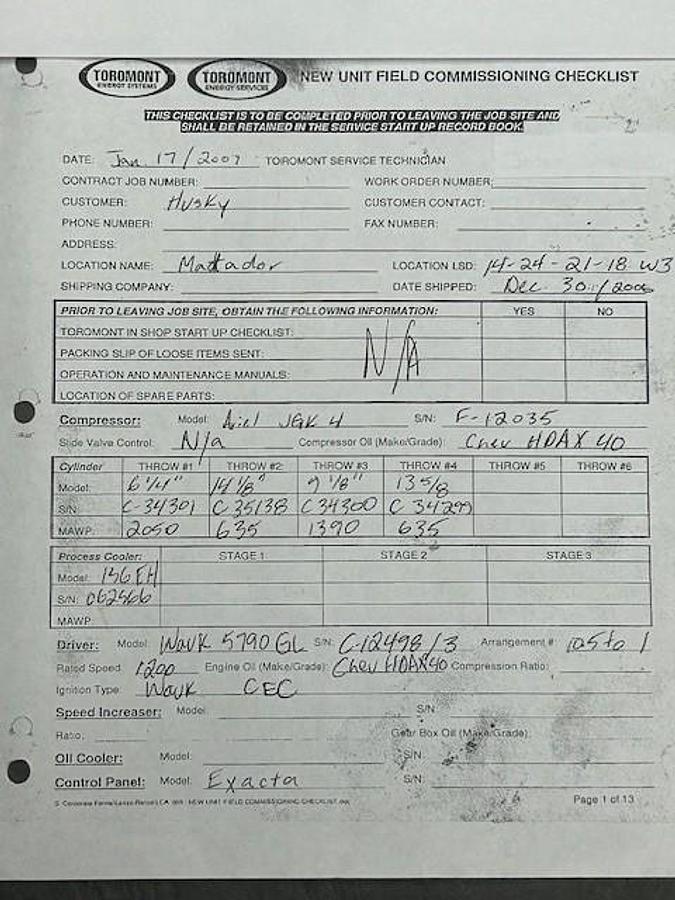 TOROMONT ENERGY SYSTEMS TOROMONT ENERGY SERVICES NEW UNIT FIELD COMMISSIONING CHECKLIST
THIS CHECKLIST IS TO BE COMPLETED PRIOR TO LEAVING THE JOB SITE AND
SHALL BE RETAINED IN THE SERVICE START UP RECORD BOOK.
DATE: Jan 17/2007 TOROMONT SERVICE TECHNICIAN
CONTRACT JOB NUMBER: WORK ORDER NUMBER:
CUSTOMER: Husky CUSTOMER CONTACT:
PHONE NUMBER: FAX NUMBER:
ADDRESS:
LOCATION NAME: Matador LOCATION LSD: 14-24-21-18 W3
SHIPPING COMPANY: DATE SHIPPED: Dec 30/2006
PRIOR TO LEAVING JOB SITE, OBTAIN THE FOLLOWING INFORMATION: YES NO
TOROMONT IN SHOP START UP CHECKLIST:
PACKING SLIP OF LOOSE ITEMS SENT: N/A
OPERATION AND MAINTENANCE MANUALS:
LOCATION OF SPARE PARTS:
Compressor: Model: Ariel JGK 4 S/N: F-12035
Slide Valve Control: N/a Compressor Oil (Make/Grade): Chev HDAX 40
Cylinder THROW #1 THROW #2 THROW #3 THROW #4 THROW #5 THROW #6
Model: 6 1/4" 14 1/8" 9 1/8" 13 5/8
S/N: C-34301 C 35138 C 34300 C 34299
MAWP: 2050 635 1390 635
Process Cooler: STAGE 1 STAGE 2 STAGE 3
Model: 156 EH
S/N: 062566
MAWP
Driver: Model: Wauk 5790 GL S/N: C-12498/3 Arrangement #:
Rated Speed 1200 Engine Oil (Make/Grade): Chev HDAX 40 Compression Ratio:
Ignition Type: Wauk CEC
Speed Increaser: Model: S/N
Ratio: Gear Box Oil (Make/Grade):
Oil Cooler: Model: S/N:
Control Panel: Model: Exacta S/N:
NEW UNIT FIELD COMMISSIONING CHECKLIST Page 1 of 13